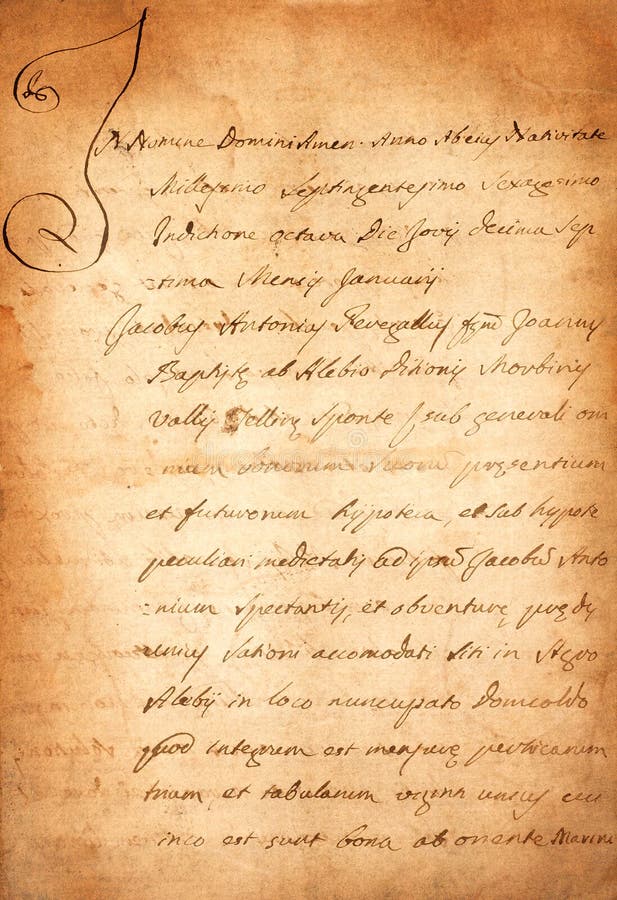 In Nomine Domini Amen. Anno Abeius Nativitate
Millesimo Septingentesimo Sexagesimo
Indichone octava Die Jovis decima Sep
tima Mensis Januarij
Jacobus Antonius qm̃ Joannis
Baptistę ab Alebio Ditionis Morbinij
Vallis Tellinę Sponte sub generali om
nium bonorum suorũ pręsentium
et futurorum hÿpoteca, et sub hypote
peculiari medietatis ad ipsũ Jacobũ Anto
=nium Spectantis, et obventurę, pręd
unius Sationi accomodati siti in Agro
Alebij in loco nuncupato Domcoldo
quod integrum est mensurę perticarum
trium, et tabularum viginti unius cui
inco est sunt bona ab oriente